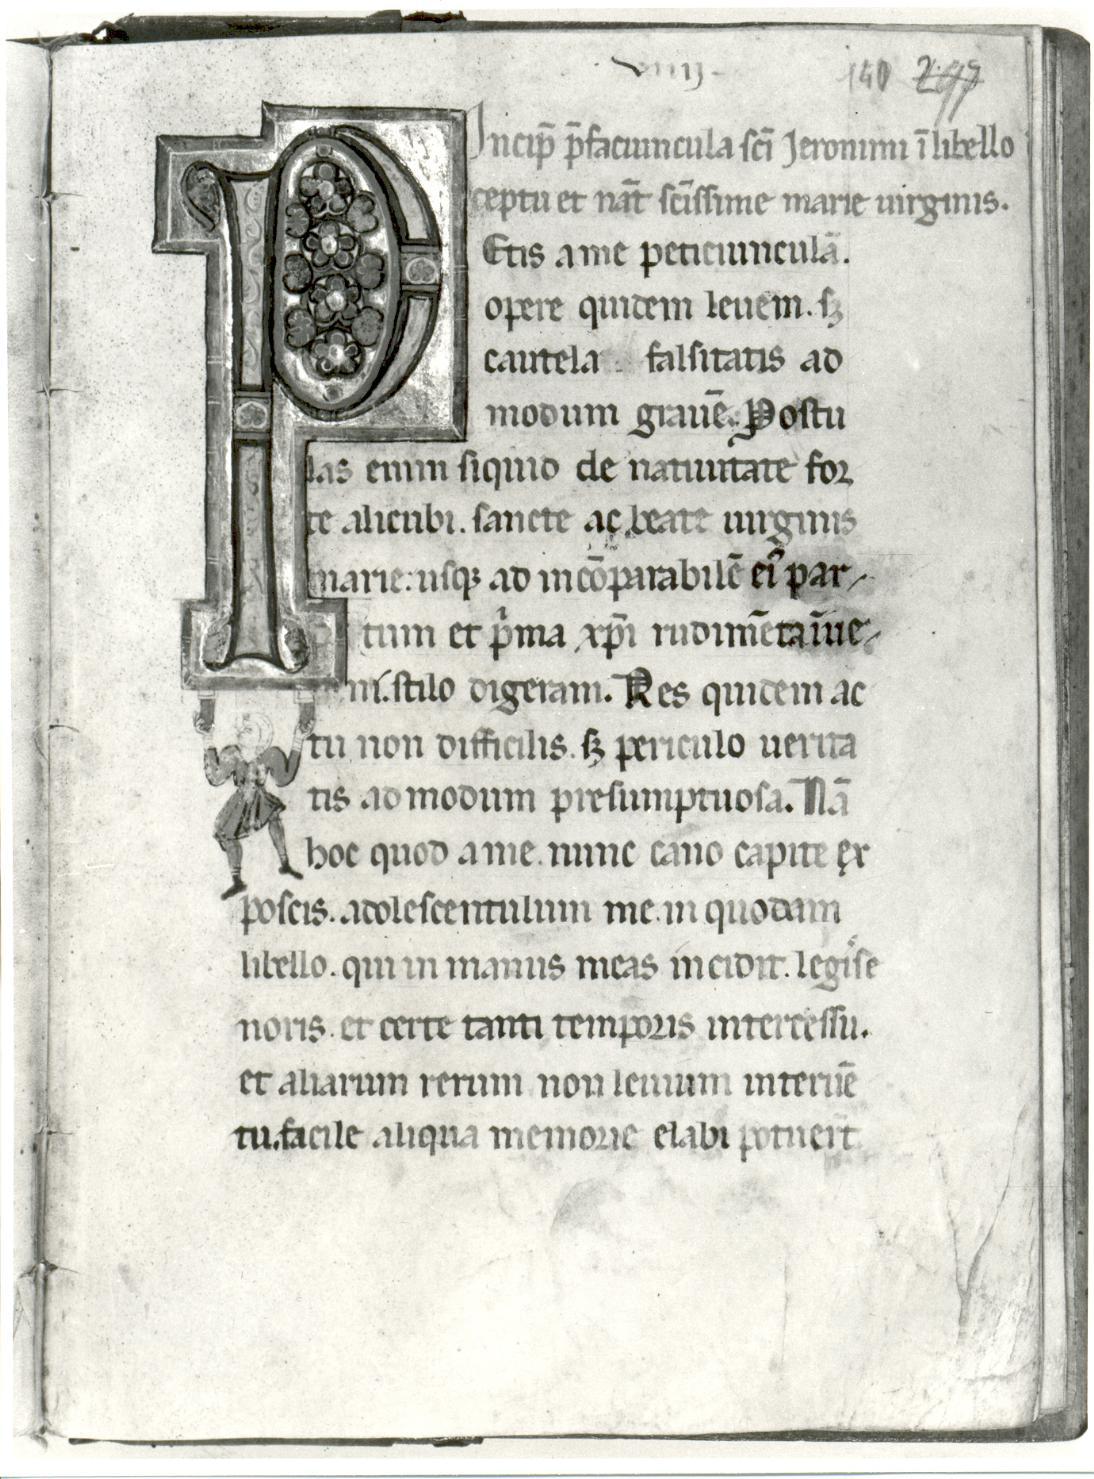 viiij.
140 297
Incip̄ p̄faciuncula sc̄i Jeronimi ī libello
ceptu et nāt sc̄issime marie uirginis.
P Etis a me peticiunculā.
opere quidem leuem. sꝫ
cautela falsitatis ad
modum grauē. Postu
las enim siquid de natiuitate for
te alicubi. sancte ac beate uirginis
marie. usqꝫ ad incōparabilē ei᷒ par-
tum et p̄ma xp̄i rudimēta īue-
ni. stilo digeram. Res quidem ac
tu non difficilis. sꝫ periculo uerita
tis admodum presumptuosa. Nā
hoc quod a me. nunc cano capite ex
poscis. adolescentulum me. in quodam
libello. qui in manus meas incidit. legisse
noris. et certe tanti temporis intercessu.
et aliarum rerum non leuium interuē
tu. facile aliqua memorie elabi potuer̄t